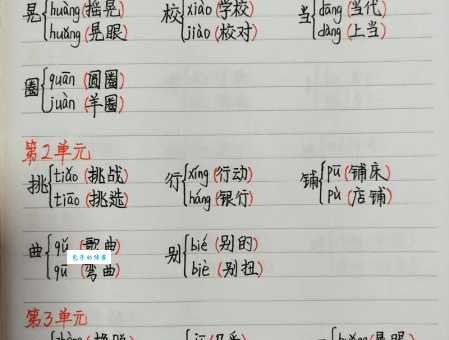 晃 huàng (摇晃) 校 xiào (学校) 当 dāng (当代)
huǎng (晃眼) jiào (校对) dàng (上当)
圈 quān (圆圈)
juàn (羊圈)
第2单元
挑 tiǎo (挑战) 行 xíng (行动) 铺 pū (铺床)
tiāo (挑选) háng (银行) pù (店铺)
曲 qǔ (歌曲) 别 bié (别的)
qū (弯曲) biè (别扭)
第3单元